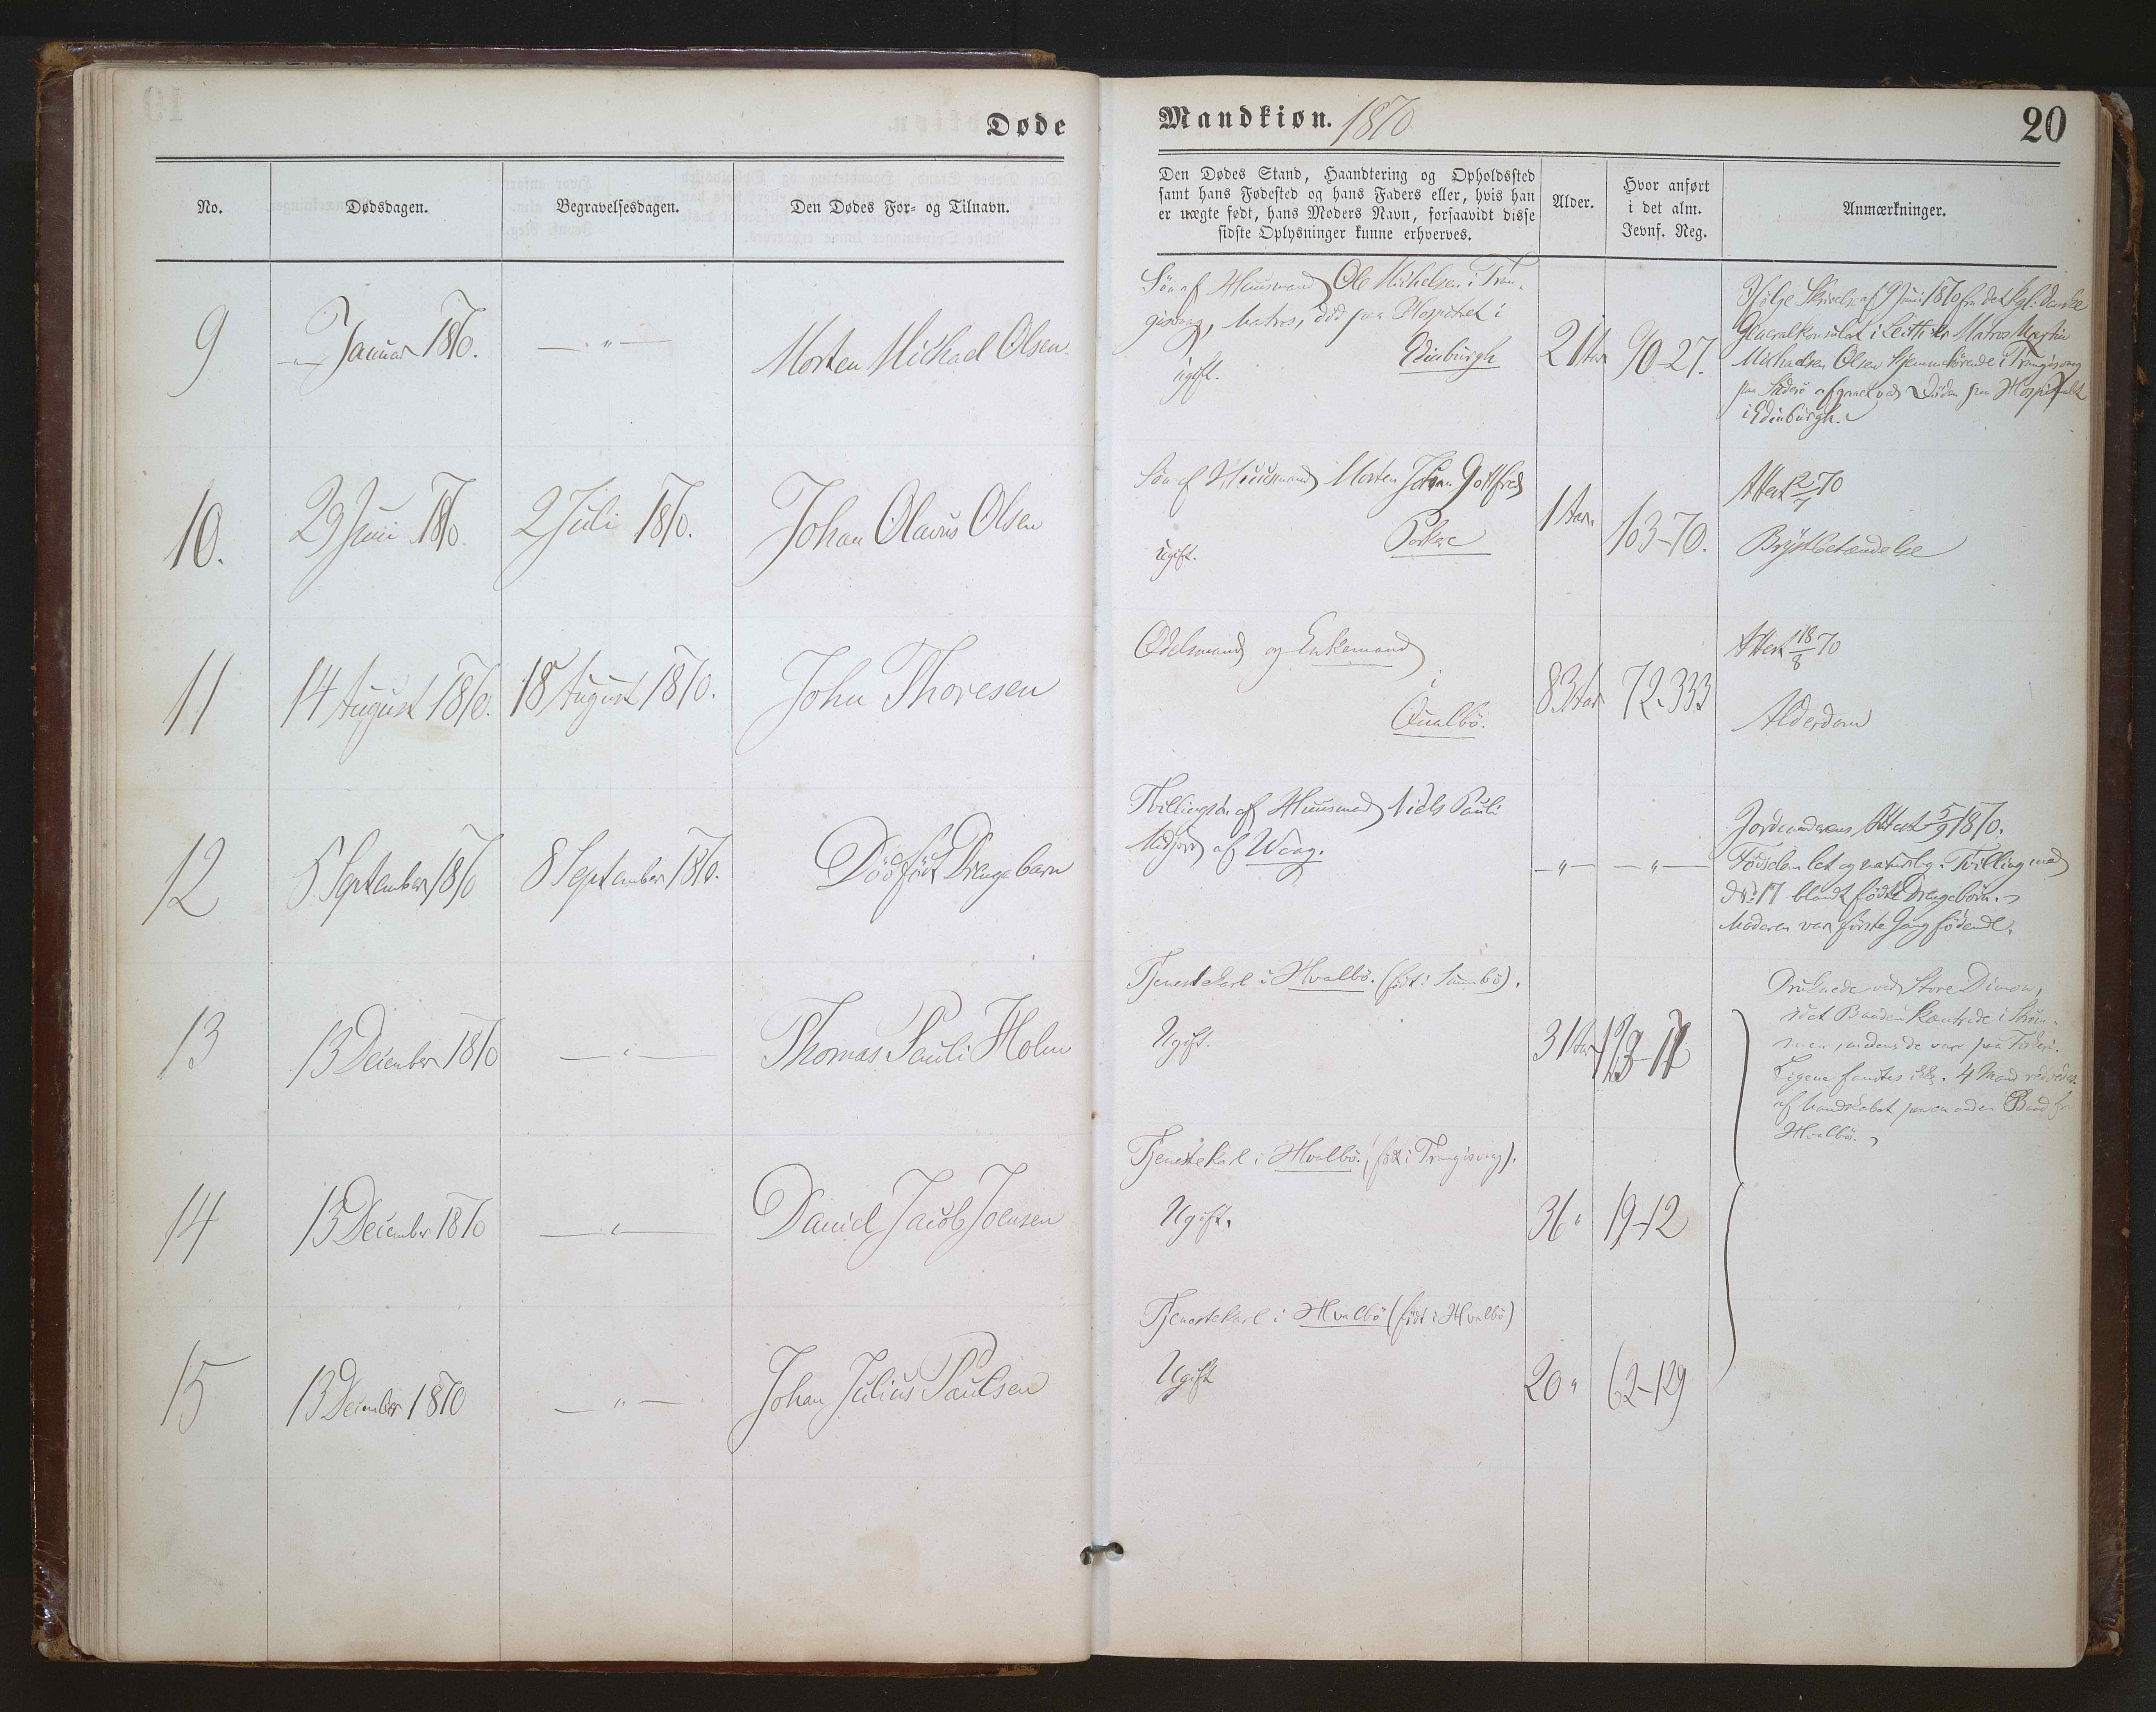 Døde
Mandkiøn. 1870
20
No.
Dødsdagen.
Begravelsesdagen.
Den Dødes For- og Tilnavn.
Den Dødes Stand, Haandtering og Opholdssted
samt hans Fødested og hans Faders eller, hvis han
er uægte født, hans Moders Navn, forsaavidt disse
sidste Oplysninger kunne erhverves.
Alder.
Hvor anført
i det alm.
Jevnf. Reg.
Anmærkninger.
9
–"– Januar 1870.
—"—
Morten Michael Olsen
Søn af Huusmand Ole Michelsen i Tran-
gisvaag, Matros, død paa Hospitalet i
Edinburgh
ugift.
21 Aar
90-27.
Ifølge Skrivelse af 9 Juni 1870 fra det kgl. danske
Generalkonsulat i Leith er Matros Martin
Michaelsen Olsen hjemmehørende i Trangisvaag
paa Suderø afgaaet ved Døden paa Hospitalet
i Edinburgh.
10.
29 Juni 1870
2 Juli 1870.
Johan Olavus Olsen
Søn af Huusmand Morten Johan Gottfred
Porkere
Ugift.
1 Aar.
103-70.
Attest 2/7 70
Brystbetændelse
11
14 August 1870.
18 August 1870.
John Thoresen
Odelsmand og Enkemand
i
Qualbö.
83 Aar
72-333
Attest 18/8 70
Alderdom
12
5 September 1870
8 September 1870.
Dödfödt Drengebarn
Tvillingsön af Huusmand Niels Pauli
Midjord af Waag.
—"—
—"—
Jordemoderens Attest 5/9 1870.
Fødselen let og naturlig. Tvilling med
No 17 blandt fødte Drengebörn.
Moderen var förste Gang födende.
13
13 December 1870
—"—
Thomas Pauli Holm
Tjenestekarl i Hvalbö. (født i Sumbö).
Ugift.
31 Aar
Druknede ved Store Dimon,
idet Baaden kæntrede i Strøm-
men, medens de vare paa Fiskeri.
Ligene fandtes ikke. 4 Mand reddedes
af Mandskabet paa en anden Baad fra
Hvalbö.
14
13 December 1870
—"—
Daniel Jacob Joensen
Tjenestekarl i Hvalbö. (født i Trangisvaag).
Ugift.
36 "
19-12
15
13 December 1870
—"—
Johan Julius Paulsen
Tjenestekarl i Hvalbö (født i Hvalbö)
Ugift
20 "
62-129